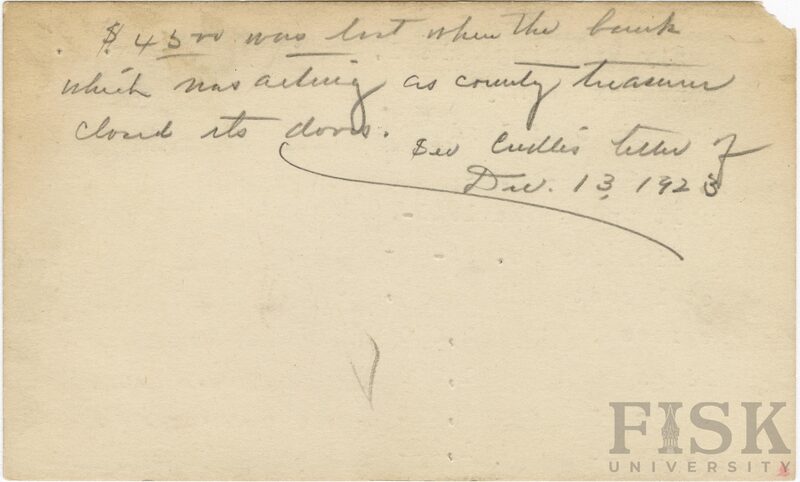 $45.00 was lost when the bank
which was acting as county treasurer
closed its doors. See letter of
Dec. 13, 1923
FISK
UNIVERSITY